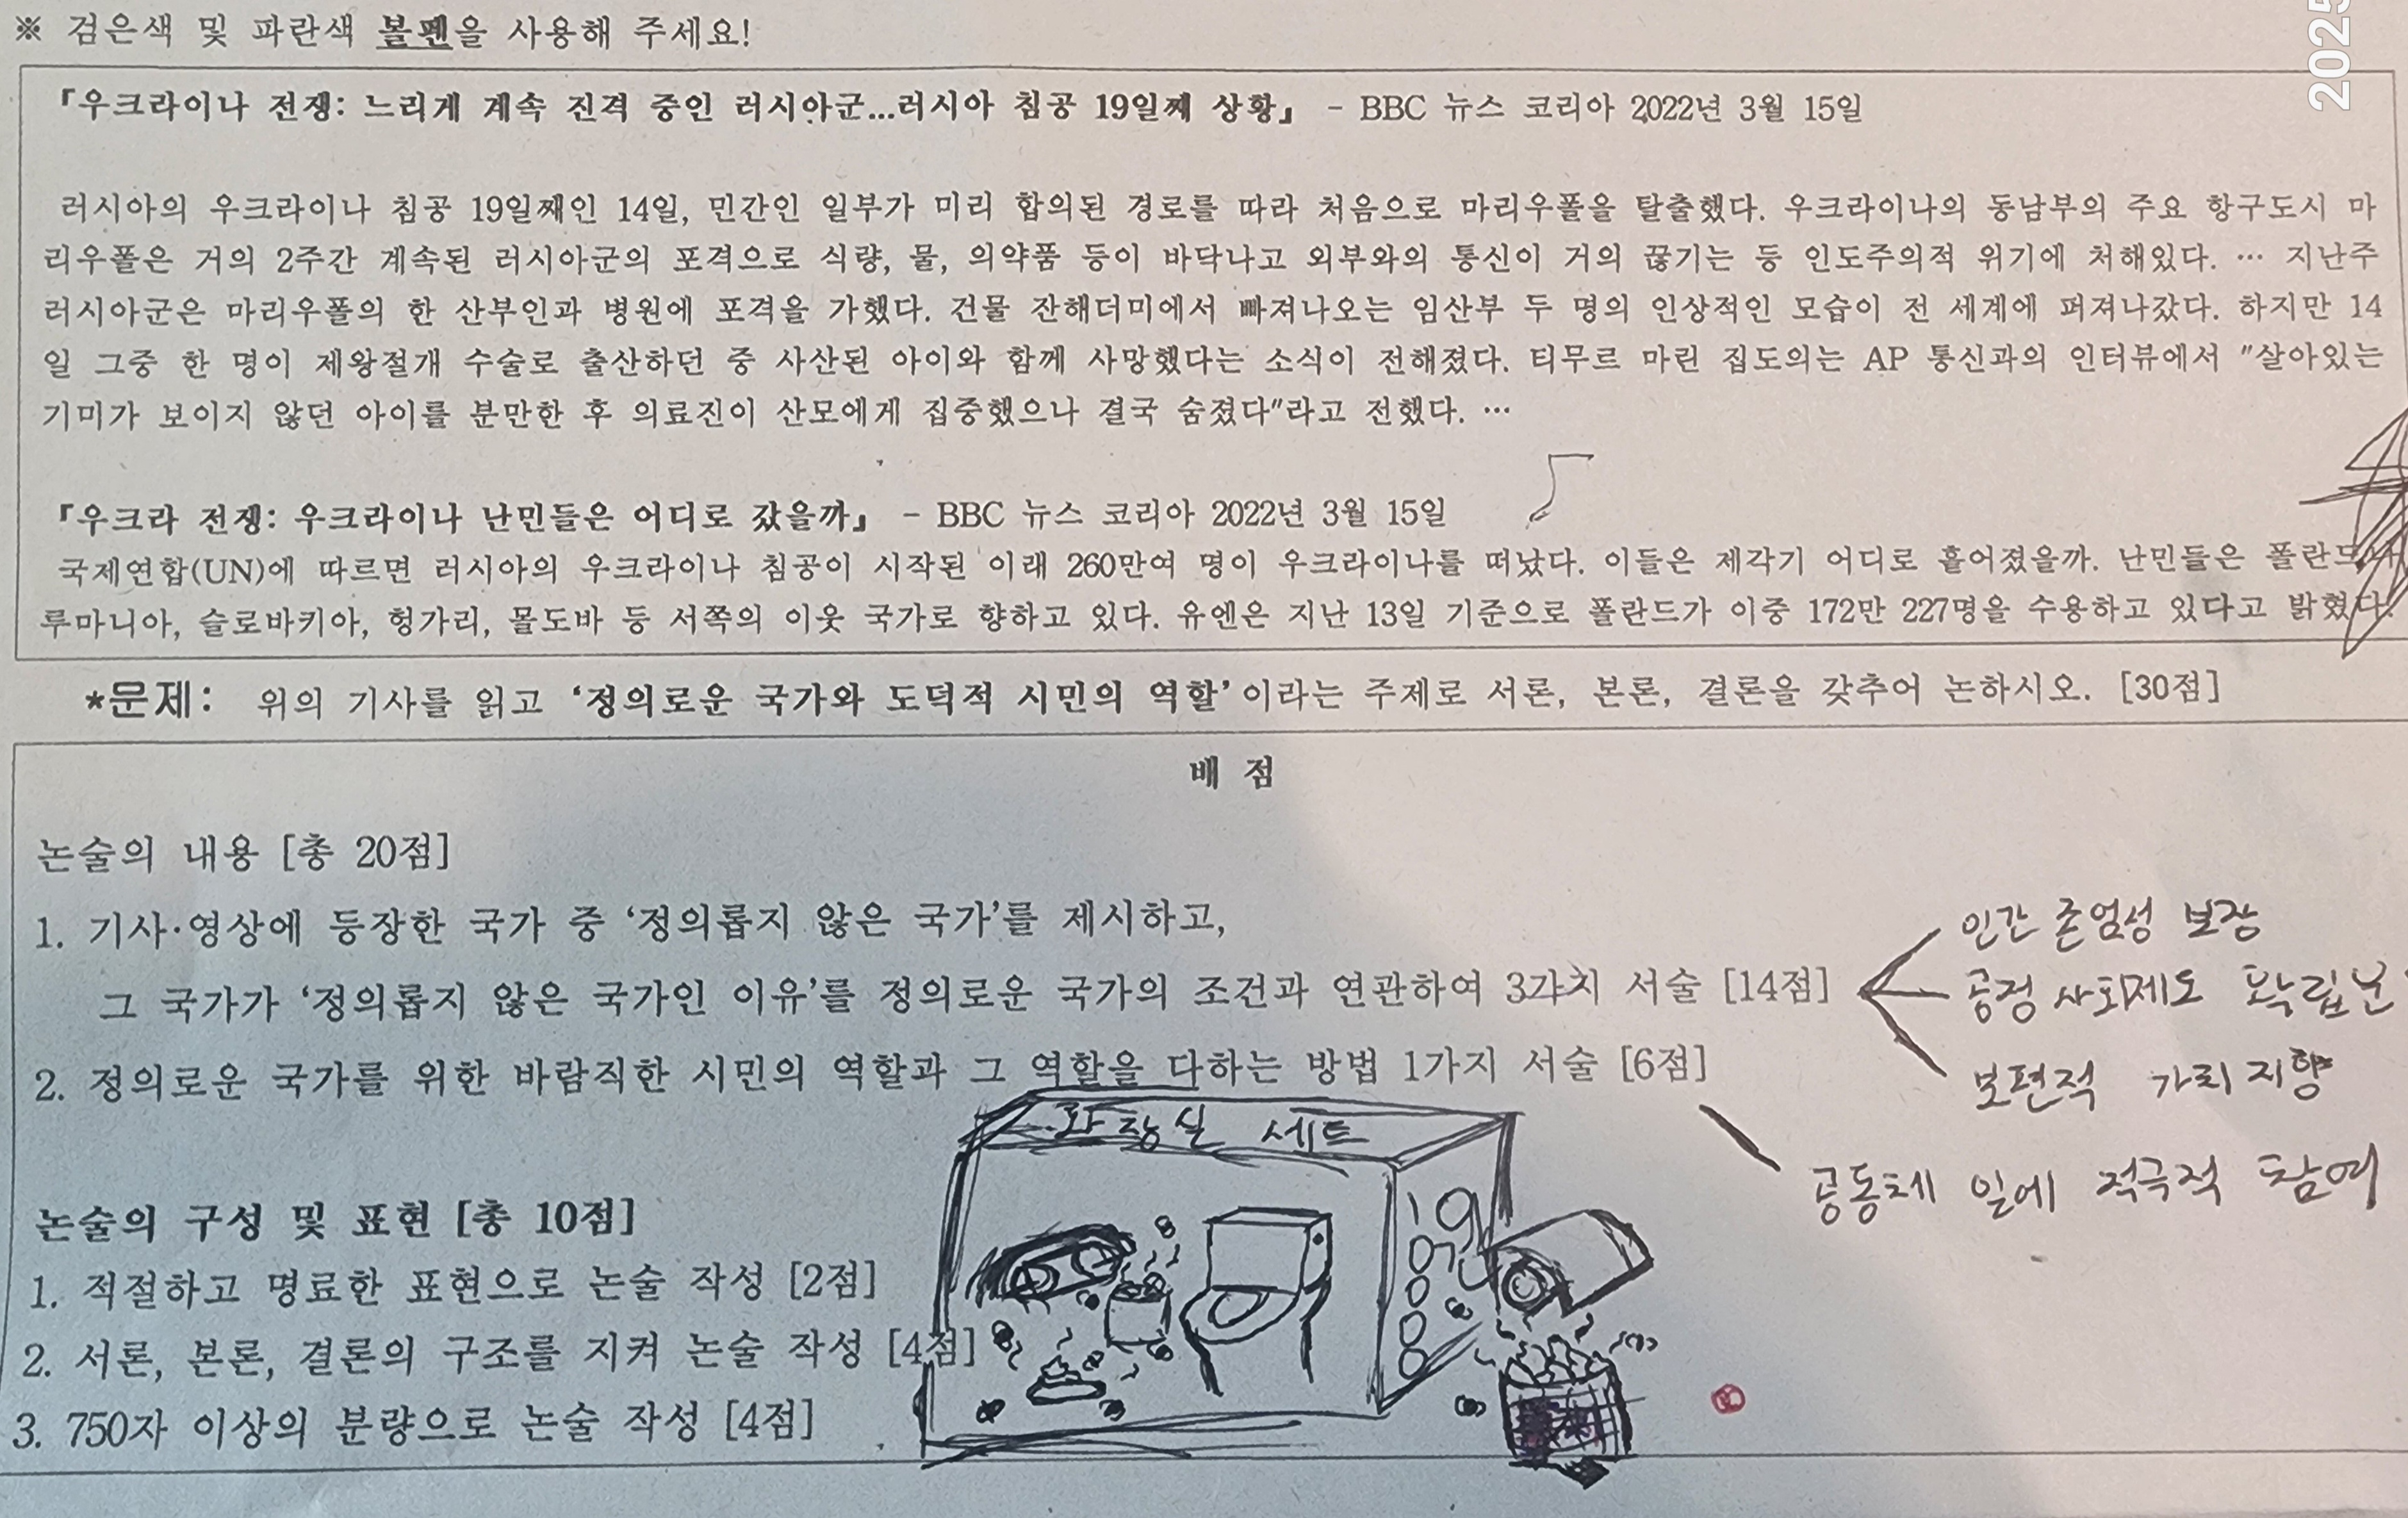 2025
※ 검은색 및 파란색 볼펜을 사용해 주세요!
『우크라이나 전쟁: 느리게 계속 진격 중인 러시아군...러시아 침공 19일째 상황』 - BBC 뉴스 코리아 2022년 3월 15일
러시아의 우크라이나 침공 19일째인 14일, 민간인 일부가 미리 합의된 경로를 따라 처음으로 마리우폴을 탈출했다. 우크라이나의 동남부의 주요 항구도시 마
리우폴은 거의 2주간 계속된 러시아군의 포격으로 식량, 물, 의약품 등이 바닥나고 외부와의 통신이 거의 끊기는 등 인도주의적 위기에 처해있다. … 지난주
러시아군은 마리우폴의 한 산부인과 병원에 포격을 가했다. 건물 잔해더미에서 빠져나오는 임산부 두 명의 인상적인 모습이 전 세계에 퍼져나갔다. 하지만 14
일 그중 한 명이 제왕절개 수술로 출산하던 중 사산된 아이와 함께 사망했다는 소식이 전해졌다. 티무르 마린 집도의는 AP 통신과의 인터뷰에서 "살아있는
기미가 보이지 않던 아이를 분만한 후 의료진이 산모에게 집중했으나 결국 숨졌다"라고 전했다. …
『우크라 전쟁: 우크라이나 난민들은 어디로 갔을까』 - BBC 뉴스 코리아 2022년 3월 15일
국제연합(UN)에 따르면 러시아의 우크라이나 침공이 시작된 이래 260만여 명이 우크라이나를 떠났다. 이들은 제각기 어디로 흩어졌을까. 난민들은 폴란드나
루마니아, 슬로바키아, 헝가리, 몰도바 등 서쪽의 이웃 국가로 향하고 있다. 유엔은 지난 13일 기준으로 폴란드가 이중 172만 227명을 수용하고 있다고 밝혔다.
*문제: 위의 기사를 읽고 '정의로운 국가와 도덕적 시민의 역할'이라는 주제로 서론, 본론, 결론을 갖추어 논하시오. [30점]
배 점
논술의 내용 [총 20점]
1. 기사·영상에 등장한 국가 중 '정의롭지 않은 국가'를 제시하고,
그 국가가 '정의롭지 않은 국가인 이유'를 정의로운 국가의 조건과 연관하여 3가지 서술 [14점]
인간 존엄성 보장
공정 사회제도 확립
보편적 가치 지향
2. 정의로운 국가를 위한 바람직한 시민의 역할과 그 역할을 다하는 방법 1가지 서술 [6점]
공동체 일에 적극적 참여
화장실 세트
논술의 구성 및 표현 [총 10점]
1. 적절하고 명료한 표현으로 논술 작성 [2점]
2. 서론, 본론, 결론의 구조를 지켜 논술 작성 [4점]
3. 750자 이상의 분량으로 논술 작성 [4점]